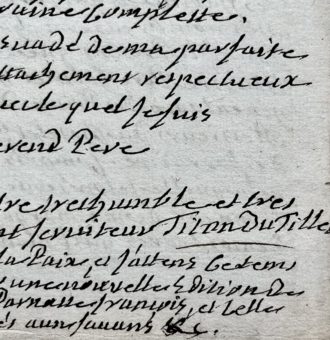 raine Complette.
suadé de ma parfaite
ttachement respectueux
aveclequel Je suis
everend Pere
dre treshumble et tres
nt serviteur Titon Du Tillet
la Paix, et J'attens Ce tems
s une nouvelle Edition Du
Parnasse françois, et telle
és aux